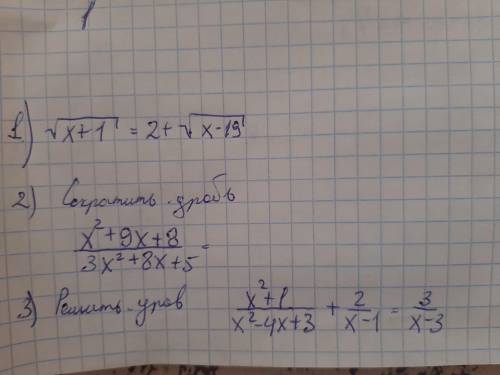 1) √(x+1) = 2+ √(x-19)
2) Сократить дробь
(x²+9x+8)/(3x²+8x+5) =
3) Решить урав (x²+1)/(x²-4x+3) + 2/(x-1) = 3/(x-3)